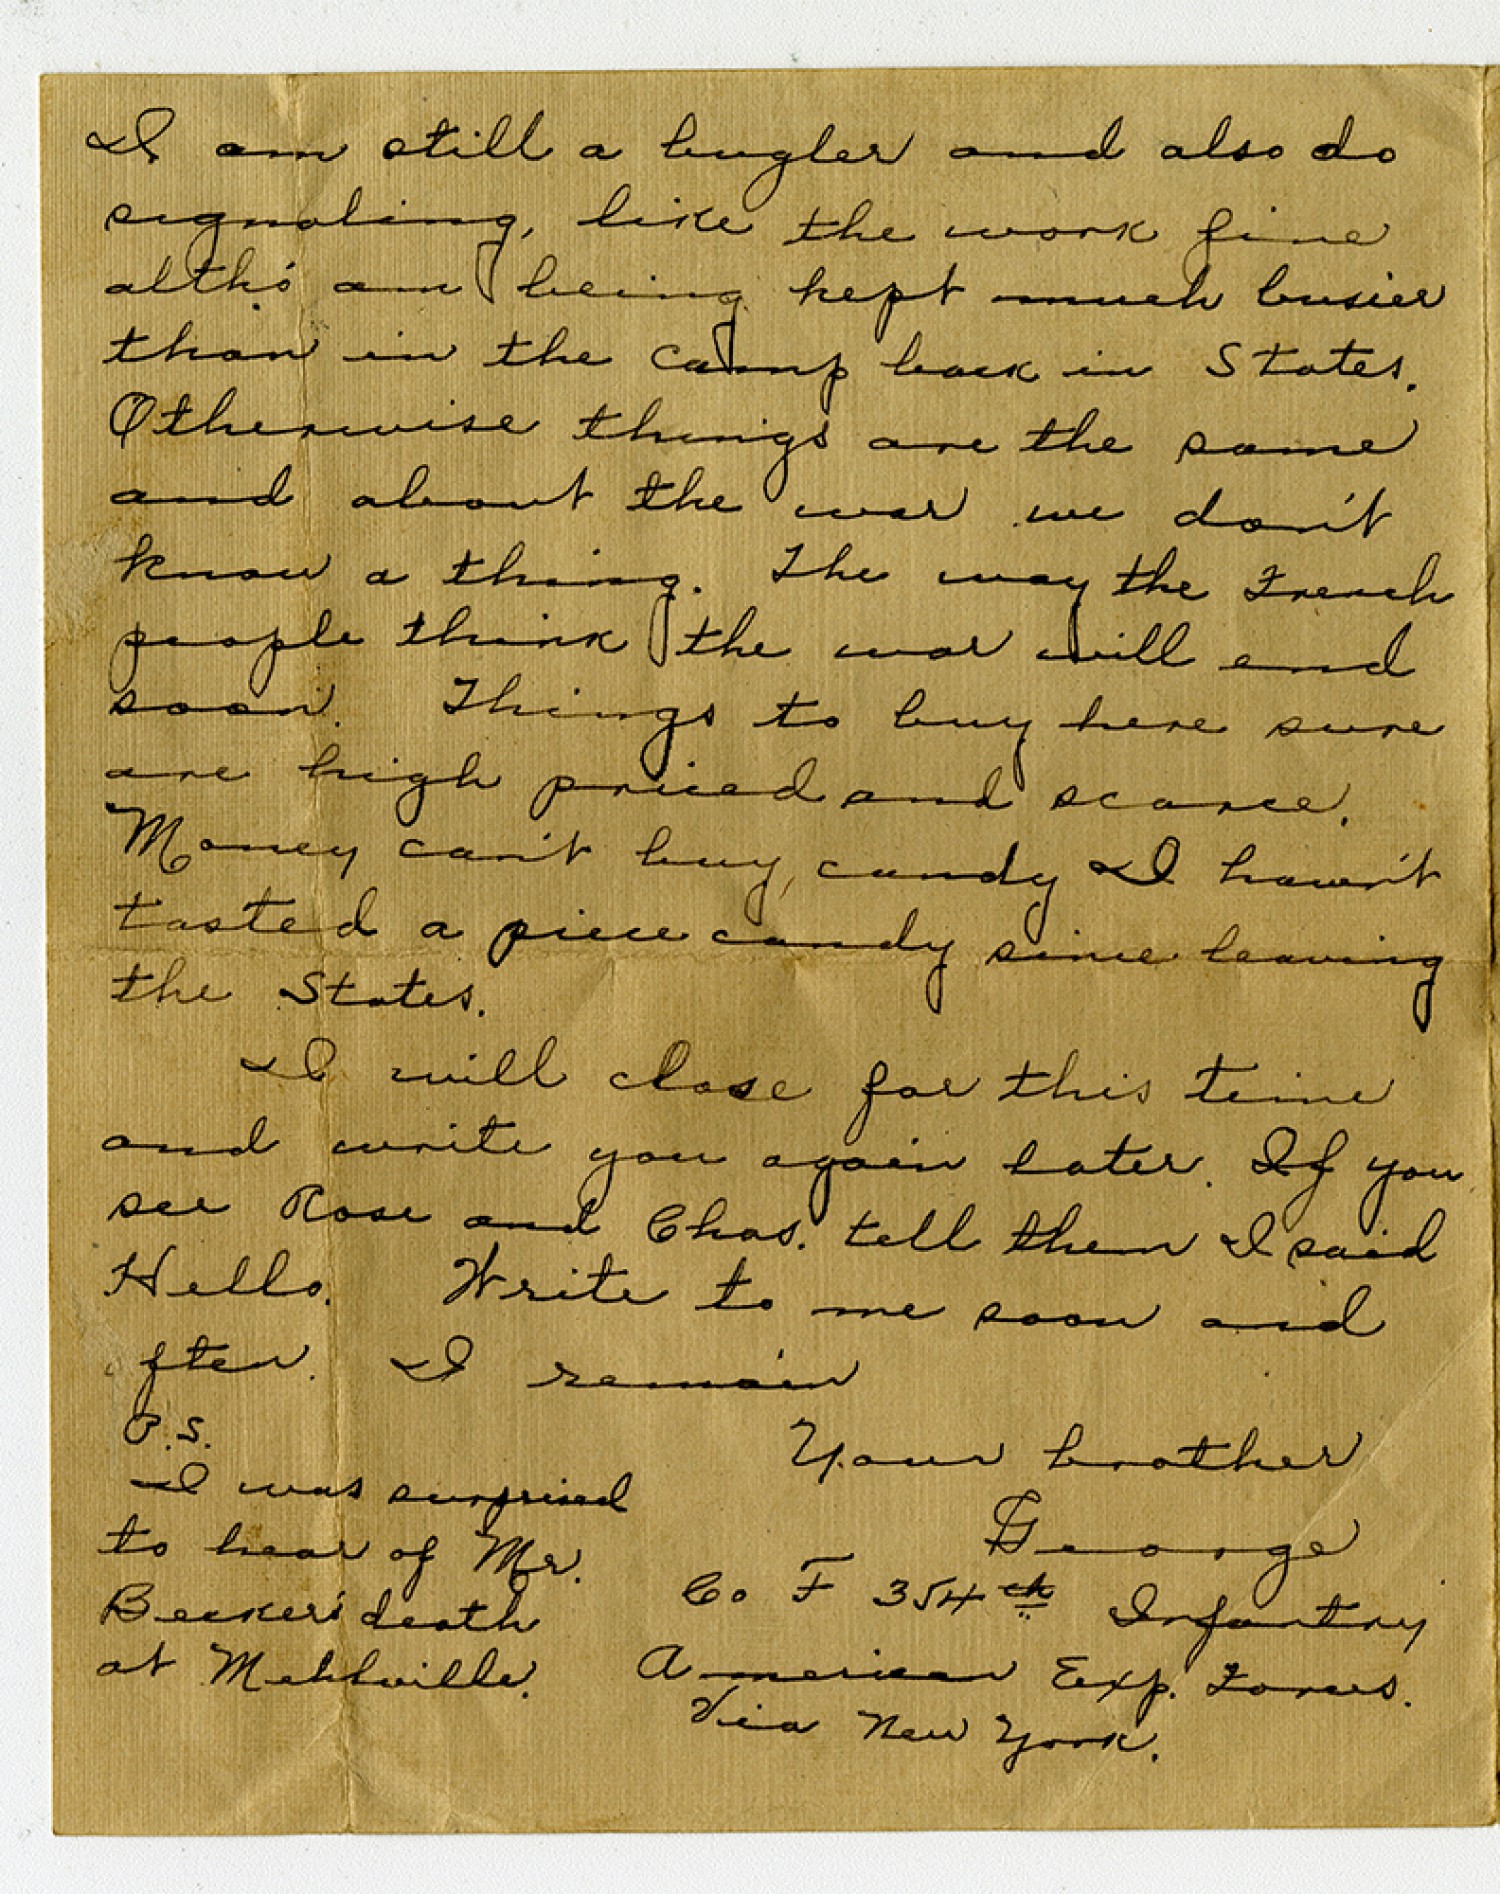 I am still a bugler and also do
signaling, like the work fine
altho' am being kept much busier
than in the camp back in States.
Otherwise things are the same
and about the war we don't
know a thing. The way the French
people think the war will end
soon. Things to buy here sure
are high priced and scarce.
Money can't buy, candy I haven't
tasted a piece candy since leaving
the States.
I will close for this time
and write you again later. If you
see Rose and Chas. tell them I said
Hello. Write to me soon and
often. I remain
Your brother
George
Co F 354th Infantry
American Exp. Forces.
Via New York.
P.S.
I was surprised
to hear of Mr.
Becker's death
at Mehlville.